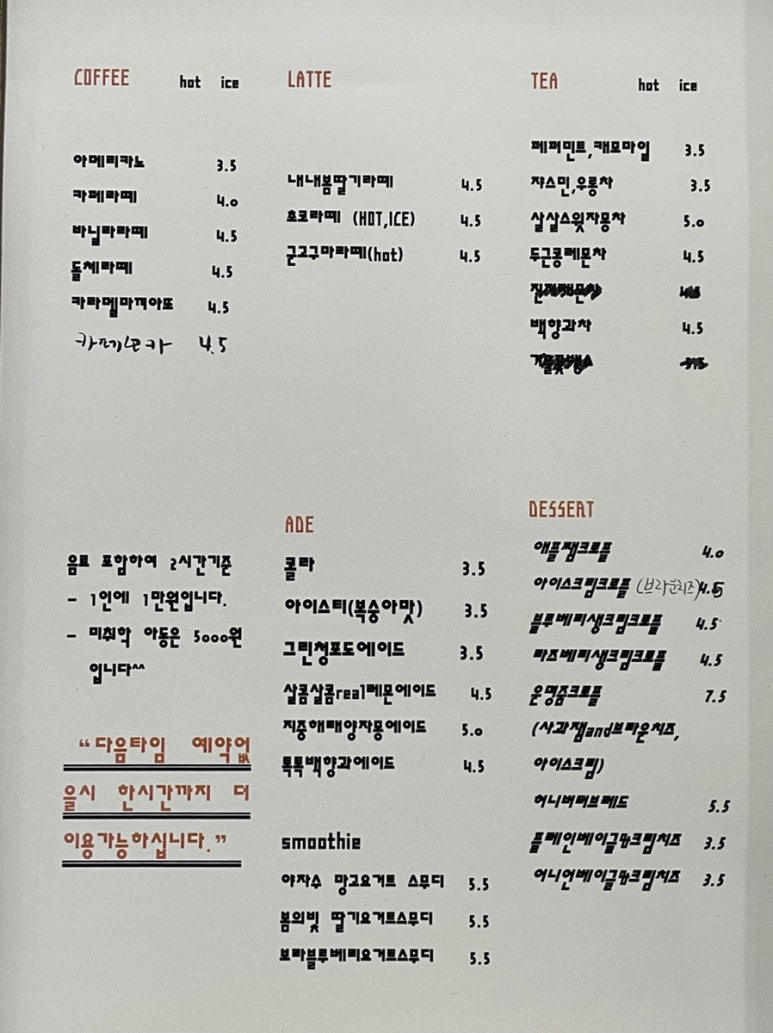 COFFEE hot ice
아메리카노 3.5
카페라떼 4.0
바닐라라떼 4.5
돌체라떼 4.5
카라멜마끼아또 4.5
카페모카 4.5
LATTE
내내봄딸기라떼 4.5
초코라떼 (HOT,ICE) 4.5
군고구마라떼(hot) 4.5
TEA hot ice
페퍼민트,캐모마일 3.5
쟈스민,우롱차 3.5
살살스윗자몽차 5.0
두근콩레몬차 4.5
백향과차 4.5
음료 포함하여 2시간기준
- 1인에 1만원입니다.
- 미취학 아동은 5000원
입니다^^
“다음타임 예약없
을시 한시간까지 더
이용가능하십니다.”
ADE
콜라 3.5
아이스티(복숭아맛) 3.5
그린청포도에이드 3.5
살콤살콤real레몬에이드 4.5
지중해태양자몽에이드 5.0
톡톡백향과에이드 4.5
smoothie
야자수 망고요거트 스무디 5.5
봄의빛 딸기요거트스무디 5.5
보라블루베리요거트스무디 5.5
DESSERT
애플잼크로플 4.0
아이스크림크로플 (브라운치즈) 4.5
블루베리생크림크로플 4.5
라즈베리생크림크로플 4.5
운명줌크로플 7.5
(사과잼and브라운치즈,
아이스크림)
허니버터브레드 5.5
플레인베이글&크림치즈 3.5
어니언베이글&크림치즈 3.5